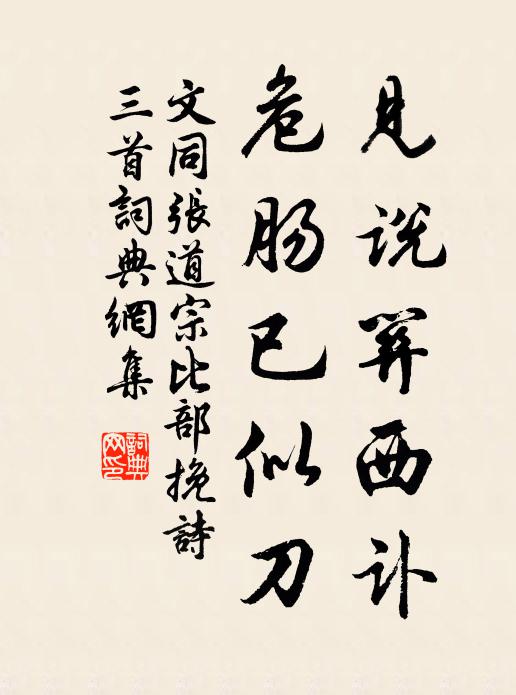 見説關西訃
危腸已似刀
文同張道宗比部挽詩
三首詞典網集
詞典網印